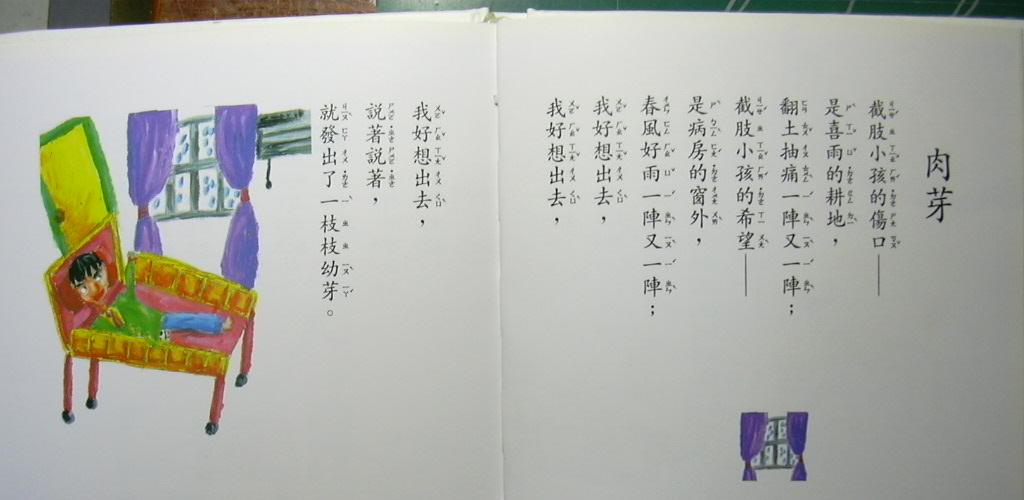 肉芽
截肢小孩的傷口——
是喜雨的耕地，
翻土抽痛一陣又一陣；
截肢小孩的希望——
是病房的窗外，
春風好雨一陣又一陣；
我好想出去，
我好想出去，
我好想出去，
說著說著，
就發出了一枝枝幼芽。